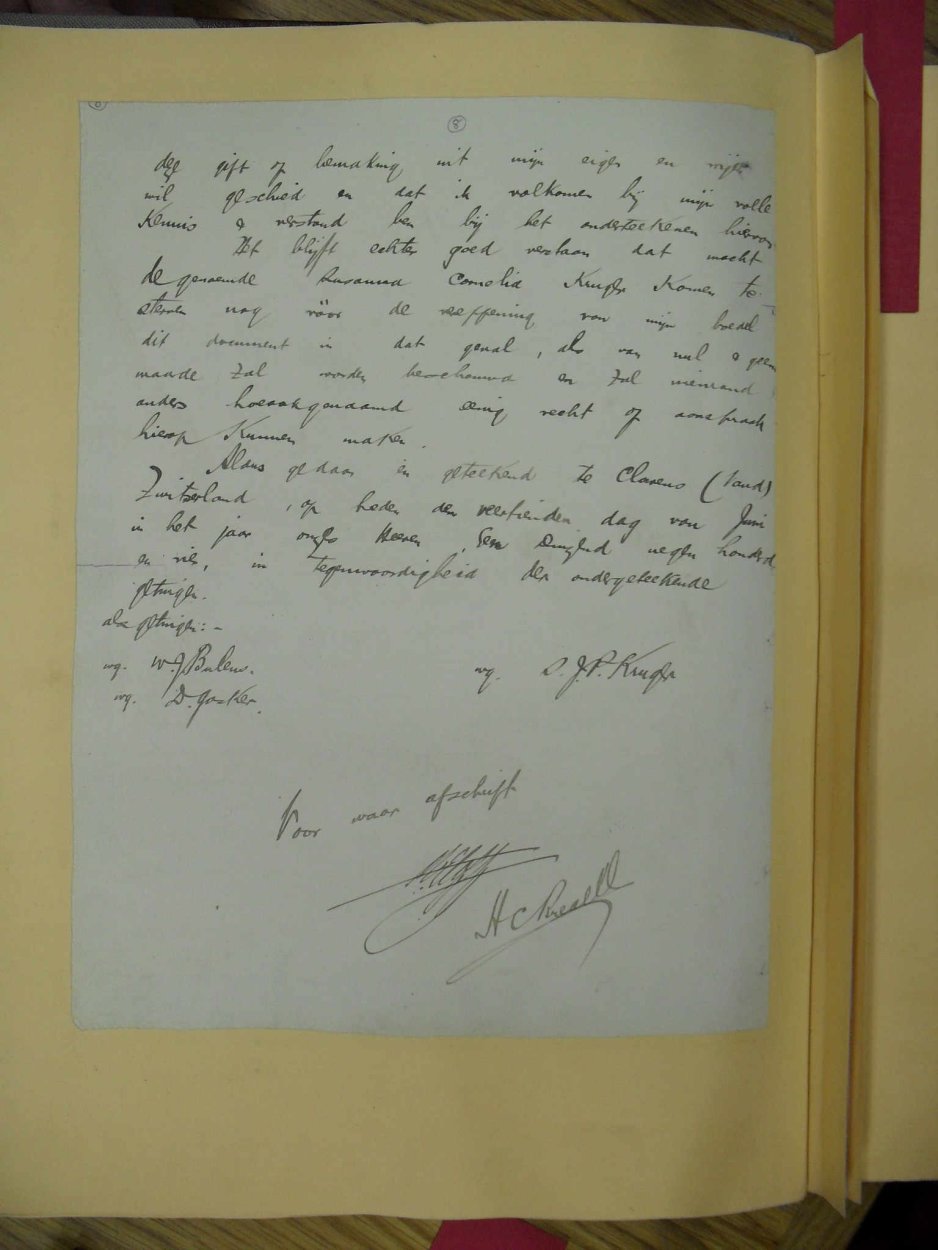 8
deze gift of bemaking uit mijn eigen en vrijen
wil geschied en dat ik volkomen bij mijn volle
Kennis & verstand ben bij het onderteekenen hiervan
Het blijft echter goed verstaan dat mocht
de genoemde Susanna Cornelia Kruger Komen te
sterven nog vóór de vereffening van mijn boedel
dit document in dat geval, als van nul & geen
waarde Zal worden beschouwd en Zal niemand
anders hoeookgenaamd eenig recht of aanspraak
hierop Kunnen maken.
Aldus gedaan en geteekend te Clarens (Vaud)
Zwitserland, op heden den veertienden dag van Juni
in het jaar onzes Heeren, Een Duizend negen honderd
en vier, in tegenwoordigheid der ondergeteekende
getuigen.
als getuigen:-
wg. W. J. Bulens. wg. S. J. P. Kruger
wg. D. Josker.
Voor waar afschrift
H C